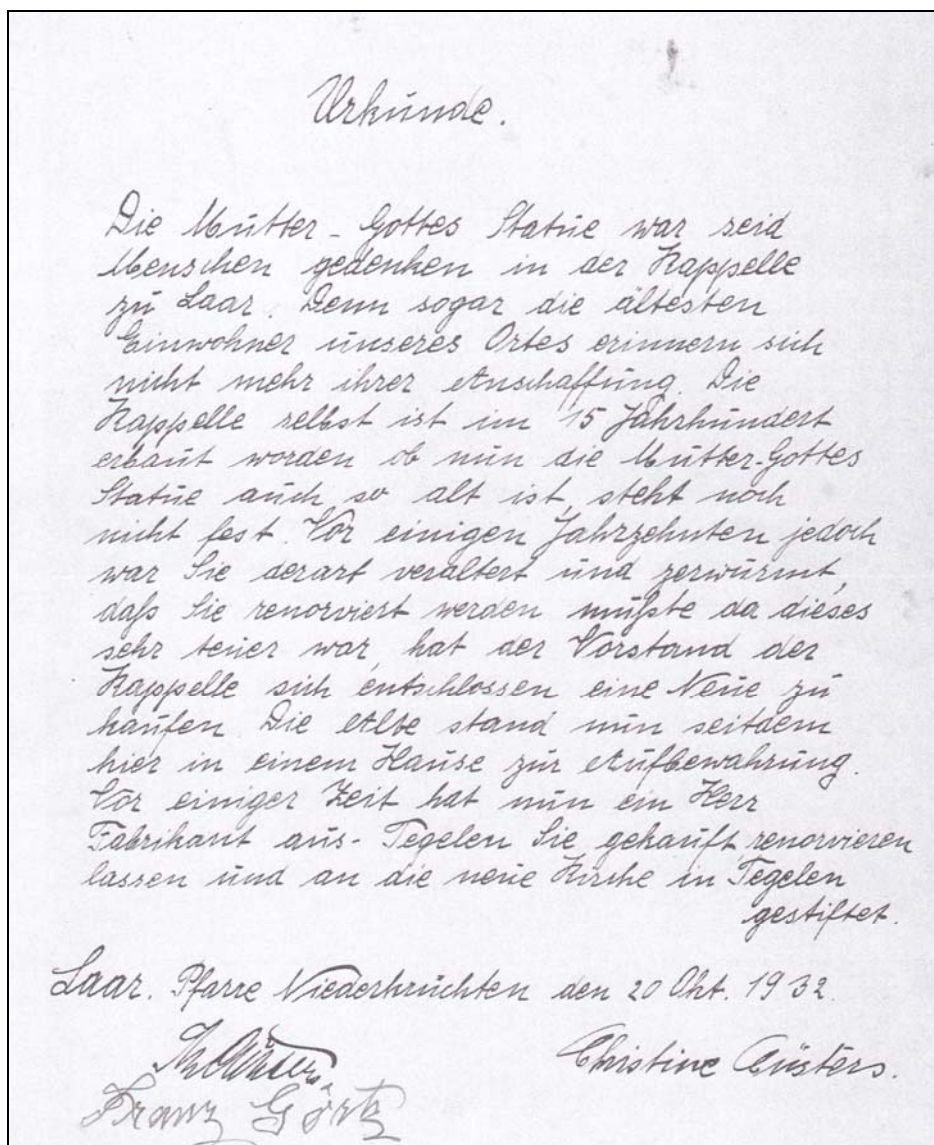 Urkunde.
Die Mutter-Gottes Statue war seid
Menschen gedenken in der Kappelle
zu Laar. Denn sogar die ältesten
Einwohner unseres Ortes erinnern sich
nicht mehr ihrer Anschaffung. Die
Kappelle selbst ist im 15 Jahrhundert
erbaut worden ob nun die Mutter-Gottes
Statue auch so alt ist, steht noch
nicht fest. Vor einigen Jahrzehnten jedoch
war Sie derart veraltert und zerwürmt,
daß Sie renorviert werden mußte da dieses
sehr teuer war, hat der Vorstand der
Kappelle sich entschlossen eine Neue zu
kaufen. Die Alte stand nun seitdem
hier in einem Hause zur Aufbewahrung.
Vor einiger Zeit hat nun ein Herr
Fabrikant aus-Tegelen Sie gekauft, renorvieren
lassen und an die neue Kirche in Tegelen
gestiftet.
Laar. Pfarre Niederkrüchten den 20 Okt. 1932.
Christine Cüsters.
Franz Görtz